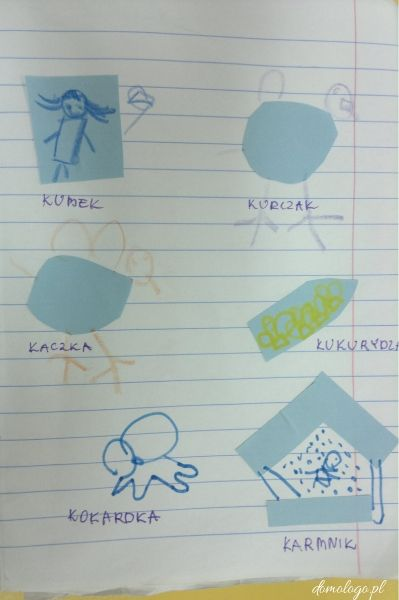 KUBEK
KURCZAK
KACZKA
KUKURYDZA
KOKARDKA
KARMNIK
domologo.pl